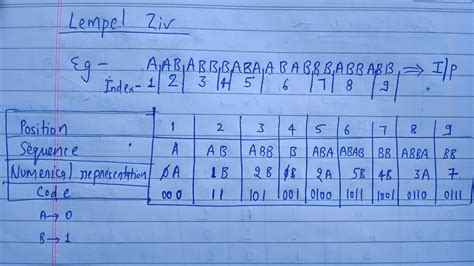 Lempel Ziv
Eg - A|AB|ABB|B|ABA|ABAB|BB|ABBA|BB ⇒ I/P
Index- 1 | 2 | 3 | 4 | 5 | 6 | 7 | 8 | 9
Position 1 2 3 4 5 6 7 8 9
Sequence A AB ABB B ABA ABAB BB ABBA BB
Numerical representation ØA 1B 2B ØB 2A 5B 4B 3A 7
Code 000 11 101 001 0100 1011 1001 0110 0111
A→ 0
B→ 1